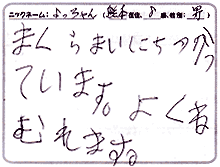 ニックネーム：よっちゃん（熊本在住、♂、性別：男）
まくらまいにち使っ
ています。よくね
むれます。